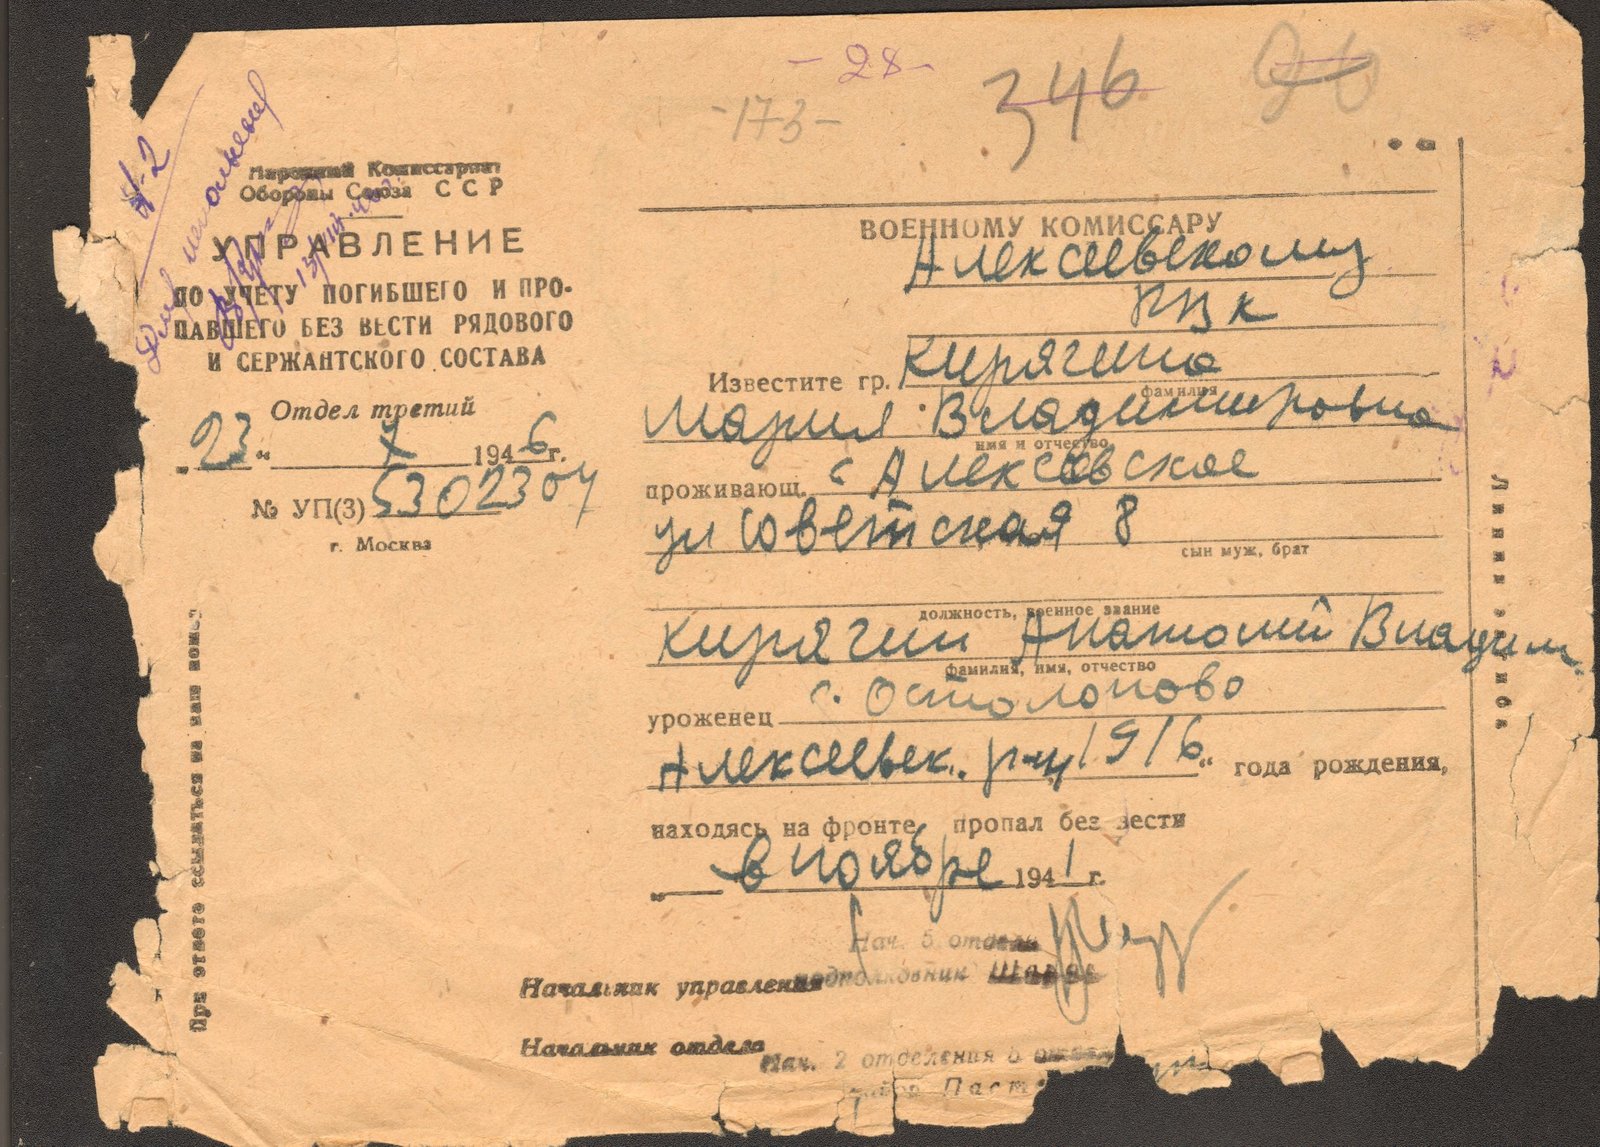 - 28 -
- 173 -
346
26
№-2
Народный Комиссариат
Обороны Союза ССР
УПРАВЛЕНИЕ
ПО УЧЕТУ ПОГИБШЕГО И ПРО-
ПАВШЕГО БЕЗ ВЕСТИ РЯДОВОГО
И СЕРЖАНТСКОГО СОСТАВА
Отдел третий
„23“ X 1946 г.
№ УП(3) 5302304
г. Москва
При ответе ссылаться на наш номер
ВОЕННОМУ КОМИССАРУ
Алексеевскому
РВК
Известите гр. Кирягина
фамилия
Мария Владимировна
имя и отчество
проживающ. с Алексеевское
ул Советская 8
сын муж, брат
должность, военное звание
Кирягин Анатолий Владим.
фамилия, имя, отчество
уроженец с. Остолопово
Алексеевск. р-н 1916 “ года рождения,
находясь на фронте, пропал без вести
„ в ноябре 1941 г.
Нач. 5 отдела
Начальник управления подполковник
Начальник отдела
Нач. 2 отделения 5 отдела
Линия згиба